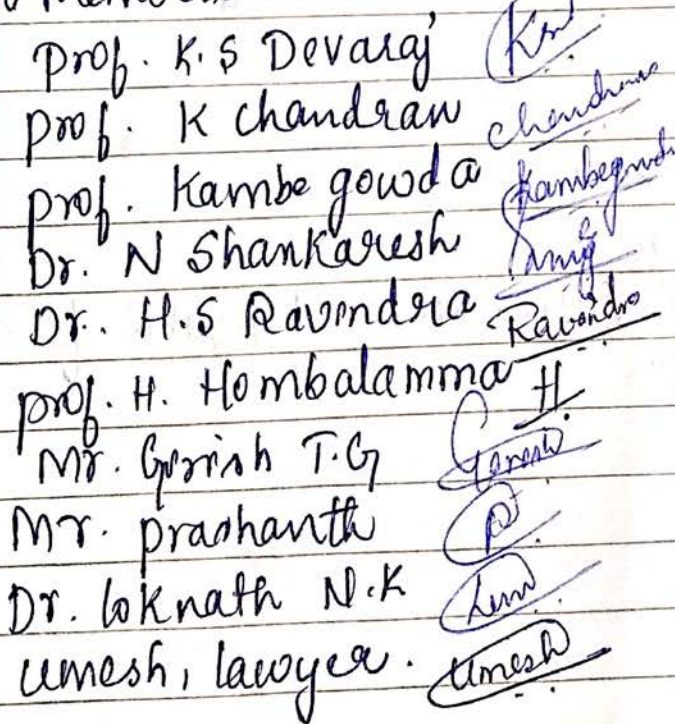 Prof. K.S Devaraj
Prof. K Chandran Chandran
Prof. Kambe gowda Kambegowda
Dr. N Shankaresh
Dr. H.S Ravindra Ravindra
Prof. H. Hombalamma H.
Mr. Girish T.G Girish
Mr. Prashanth P
Dr. Loknath N.K
Umesh, lawyer. Umesh